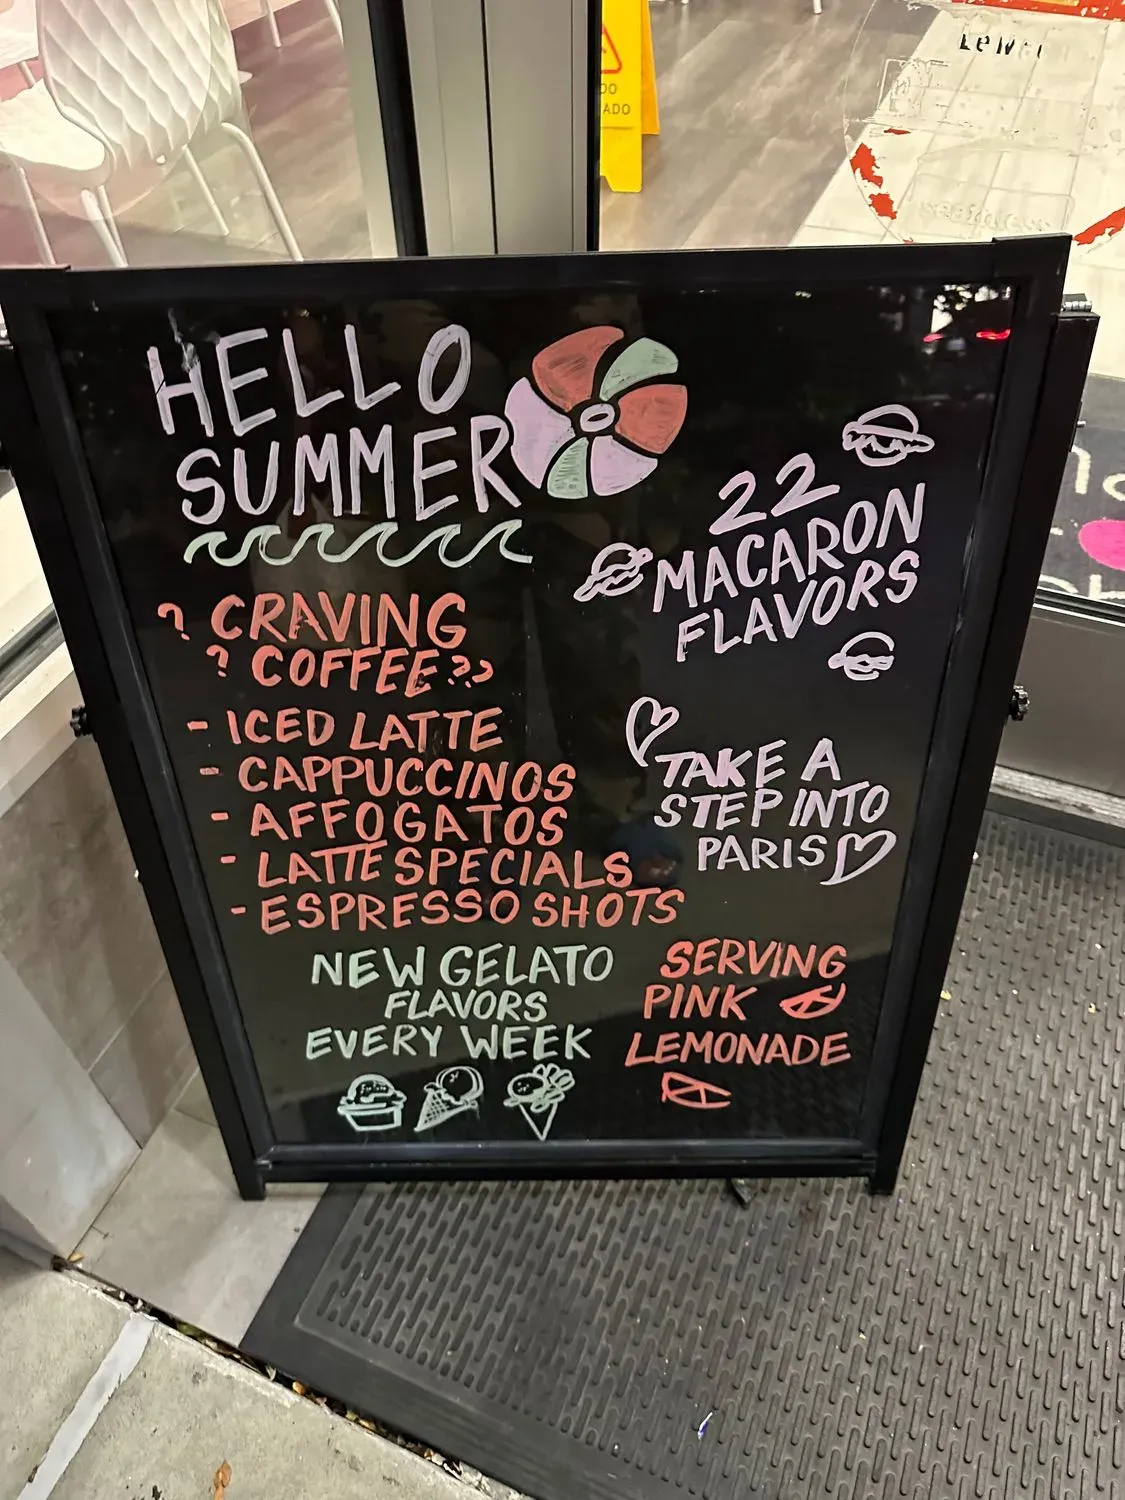 HELLO
SUMMER
? CRAVING
? COFFEE??
- ICED LATTE
- CAPPUCCINOS
- AFFOGATOS
- LATTE SPECIALS
- ESPRESSO SHOTS
NEW GELATO
FLAVORS
EVERY WEEK
22
MACARON
FLAVORS
TAKE A
STEP INTO
PARIS
SERVING
PINK
LEMONADE